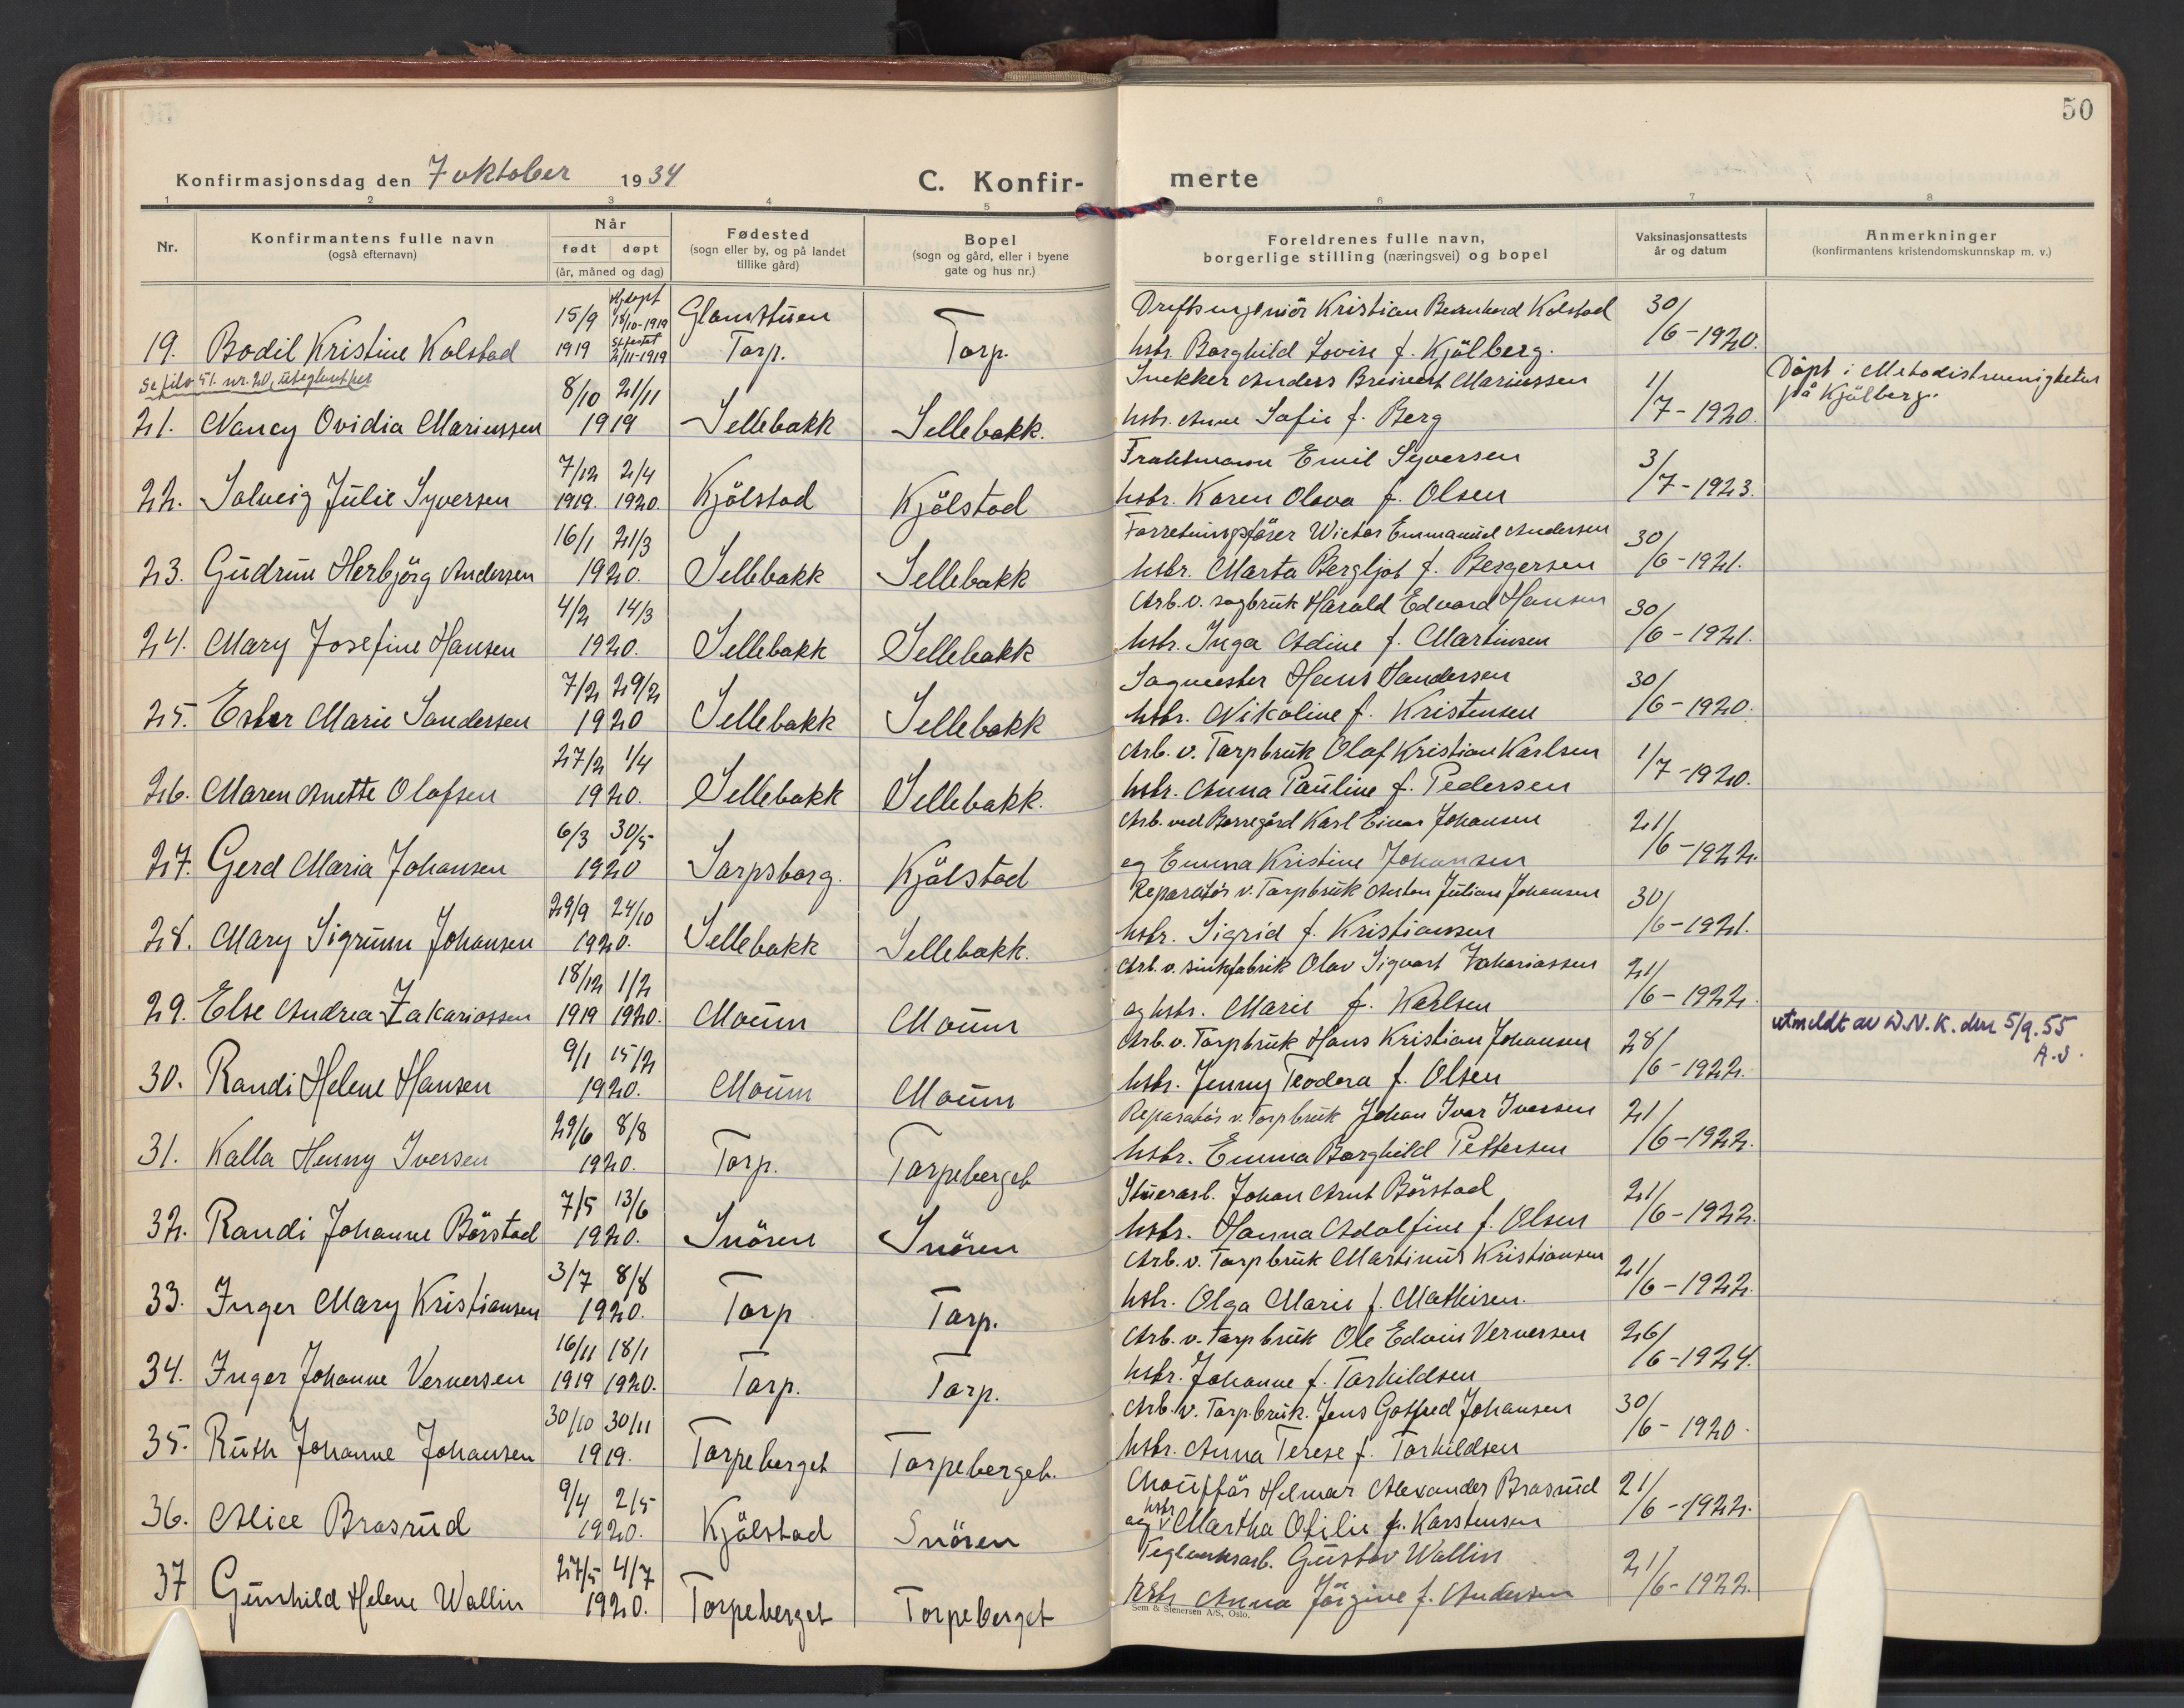 50
Konfirmasjonsdag den 7 oktober 1934
C. Konfir-
merte
1 2 3 4 5 6 7 8
Nr.
Konfirmantens fulle navn
(også efternavn)
Når
født døpt
(år, måned og dag)
Fødested
(sogn eller by, og på landet
tillike gård)
Bopel
(sogn og gård, eller i byene
gate og hus nr.)
Foreldrenes fulle navn,
borgerlige stilling (næringsvei) og bopel
Vaksinasjonsattests
år og datum
Anmerkninger
(konfirmantens kristendomskunnskap m. v.)
15/9 Hjdøpt 18/10-1919 Driftsingeniör Kristian Bernhard Kolstad 30/
19. Bodil Kristine Kolstad 1919 2/11-1919 Torp. Torp. hstr. Borghild Lovise f. Kjölberg. /6-1920.
Se filo 51. nr. 20,
8/10 21/11 Snekker Anders Mariussen 1/ Döpt i Metodistmenigheten
21. Nancy Ovidia Mariussen 1919 Sellebakk Sellebakk. hstr. Anne Sofie f. Berg /7-1920. på Kjölberg.
7/12 2/4 Emil Syversen 3/
22. Solveig Julie Syversen 1919. 1920. Kjölstad Kjölstad hstr. Karen Olava f. Olsen /7-1923.
16/1 21/3 Forretningsförer Wictor Emmanuel Andersen 30/
23. Gudrun Herbjörg Andersen 1920. Sellebakk Sellebakk hstr. Marta Bergljot f. Bergersen /6-1921.
4/2 14/3 Arb. v. sagbruk Harald Edvard Hansen 30/
24. Mary Josefine Hansen 1920. Sellebakk Sellebakk hstr. Inga Adine f. Martinsen /6-1921.
7/2 29/2 Sagmester Hans Sandersen 30/
25. Ester Marie Sandersen 1920 Sellebakk Sellebakk hstr. Nikoline f. Kristensen /6-1920.
27/2 1/4 Arb. v. Torpbruk Olaf Kristian Karlsen 1/
26. Maren Anette Olafsen 1920. Sellebakk Sellebakk. hstr. Anna Pauline f. Pedersen /7-1920.
6/3 30/5 Arb. ved Borregård Karl Einar Johansen 21/
27. Gerd Maria Johansen 1920 Sarpsborg. Kjölstad og Emma Kristine Johansen /6-1922.
29/9 24/10 Reparatör v. Torpbruk Anton Julian Johansen 30/
28. Mary Sigrunn Johansen 1920. Sellebakk Sellebakk. hstr. Sigrid f. Kristiansen /6-1921.
18/12 1/2 Arb. v. sinkfabrik Olav Sigvart Zakariassen 21/
29. Else Andrea Zakariassen 1919 1920. Moum Moum og hstr. Marie f. Karlsen /6-1922.
9/1 15/2 Arb. v. Torpbruk Hans Kristian Johansen 28/ utmeldt av D.N.K. den 5/9.55
30. Randi Helene Hansen 1920. Moum Moum hstr. Jenny Teodora f. Olsen /6-1922. A.S.
29/6 8/8 Reparatör v. Torpbruk Johan Ivar Iversen 21/
31. Kalla Henny Iversen 1920. Torp. Torpeberget hstr. Emma Borghild Pettersen /6-1922.
7/5 13/6 Stuerarb. Johan Arnt Börstad 21/
32. Randi Johanne Börstad 1920. Snören Snören hstr. Hanna Adolfine f. Olsen /6-1922.
3/7 8/8 Arb. v. Torpbruk Martinus Kristiansen 21/
33. Inger Mary Kristiansen 1920. Torp Torp. hstr. Olga Marie f. Mathisen. /6-1922.
16/11 18/1 Arb. v. Torpbruk Ole Edvin Vernersen 26/
34. Inger Johanne Vernersen 1919 1920. Torp. Torp. hstr. Johanne f. Torkildsen /6-1924.
30/10 30/11 Arb. v. Torpbruk. Jens Gotfred Johansen 30/
35. Ruth Johanne Johansen 1919. Torpeberget Torpeberget. hstr. Anna Terese f. Torkildsen /6-1920.
9/4 2/5 Chaufför Helmar Alexander Brasrud 21/
36. Alice Brasrud 1920. Kjölstad Snören og hstr. Martha Otilie f. Karstensen /6-1922.
27/5 4/7 Teglverksarb. Gustav Wallin 21/
37 Gunhild Helene Wallin 1920. Torpeberget Torpeberget hstr. Anna Jörgine f. Andersen /6-1922.
Sem & Stenersen A/S, Oslo.